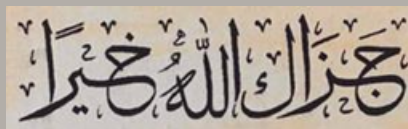 جَزَاك اللّٰهُ خيرًا